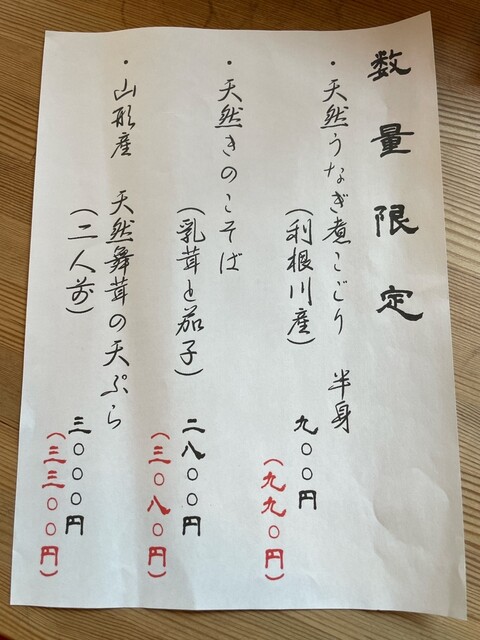 数量限定
・天然うなぎ煮こごり 半身
(利根川産)
九〇〇円
(九九〇円)
・天然きのこそば
(乳茸と茄子)
二八〇〇円
(三〇八〇円)
・山形産 天然舞茸の天ぷら
(二人前)
三〇〇〇円
(三三〇〇円)